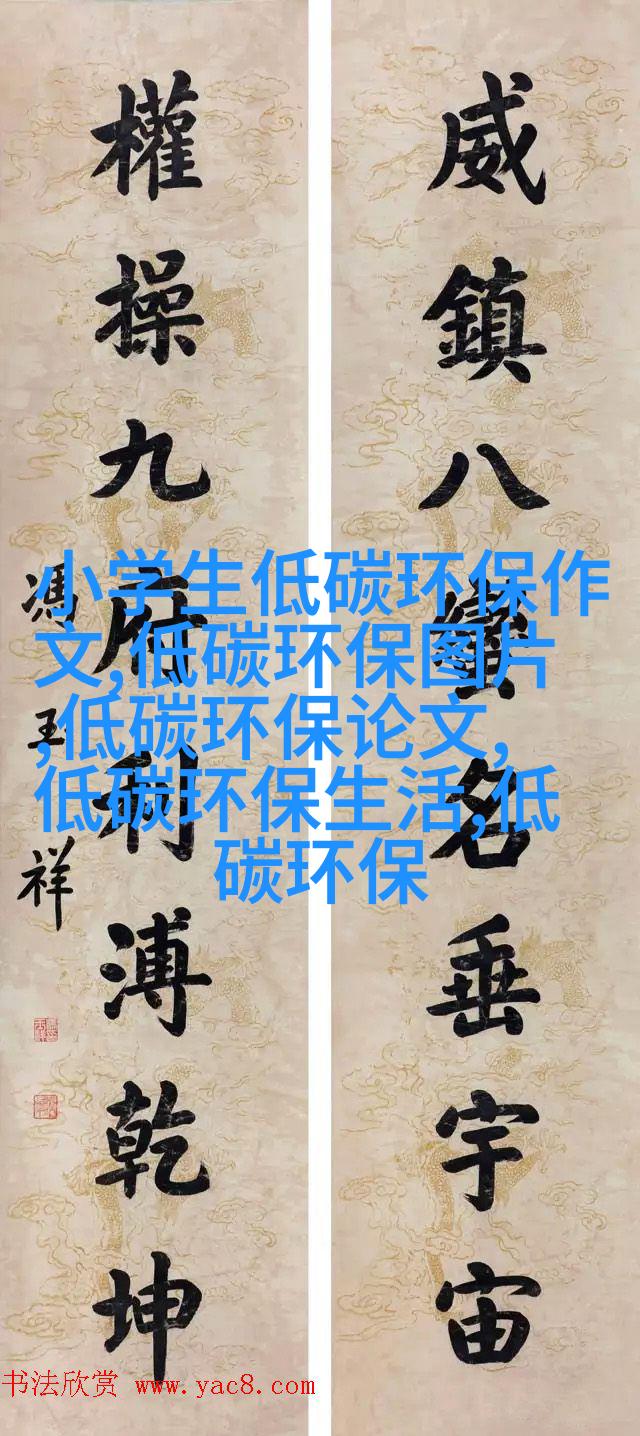 威鎮八蠻名垂宇宙
權操九府利溥乾坤
馮玉祥
小学生低碳环保作
文,低碳环保图片
,低碳环保论文,
低碳环保生活,低
碳环保
书法欣赏 www.yac8.com